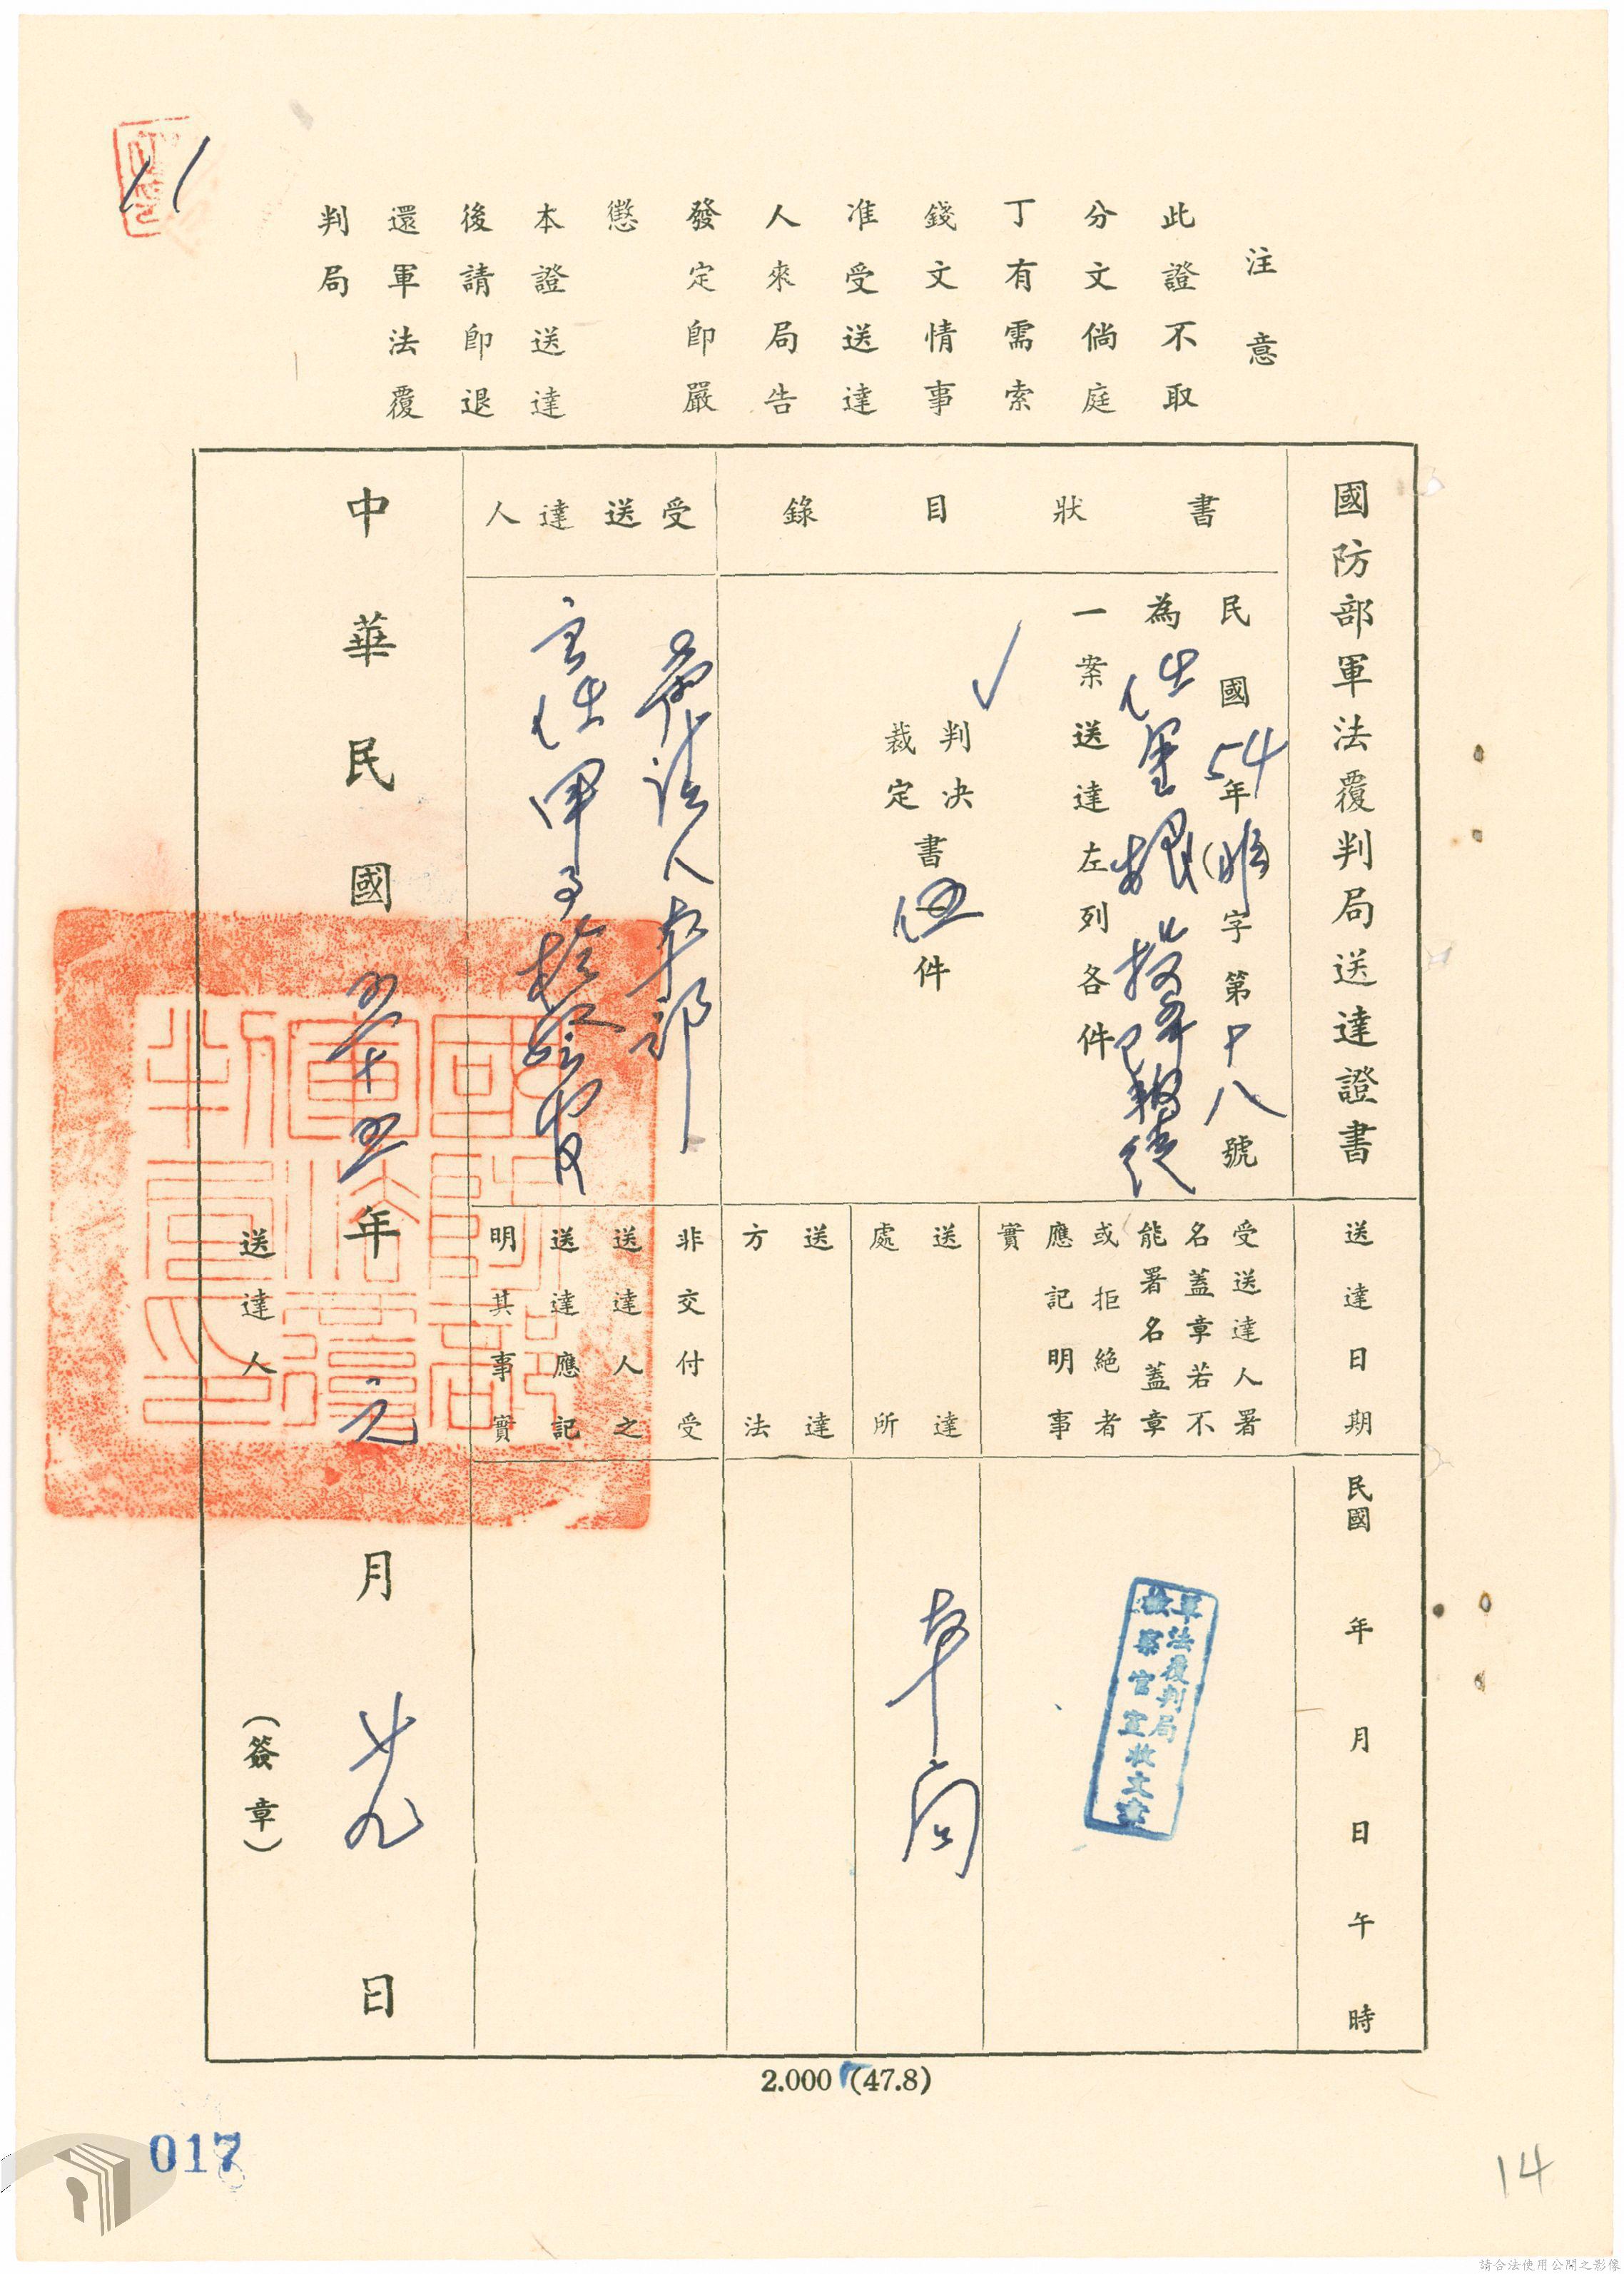 注意
此證不取
分文倘庭
丁有需索
錢文情事
准受送達
人來局告
發定即嚴
懲
本證送達
後請即退
還軍法覆
判局
11
國防部軍法覆判局送達證書
書狀目錄
民國54年( )字第十八號
為
一案送達左列各件
判決
裁定
書伍件
受送達人
聲請人本部
送達日期
民國 年 月 日 午 時
受送達人署
名蓋章若不
能署名蓋章
或拒絕者
應記明事
實
軍法覆判局
檢察官室收文章
送達
處所
本局
送達
方法
非交付受
送達人之
送達應記
明其事實
中華民國五十五年元月廿九日
送達人
(簽章)
2.000 (47.8)
017
14
請合法使用公開之影像